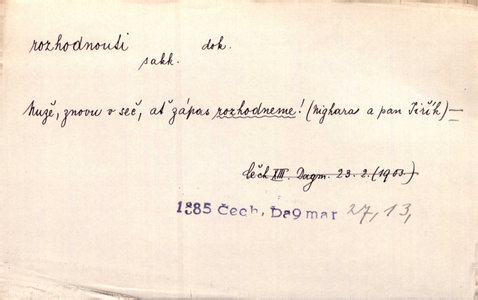 rozhodnouti dok.
sakk.
Nuže, znovu v seč, ať zápas rozhodneme! (Nighara a pan Jiřík) —
Čech XIII. Dagm. 23. 2. (1903)
1885 Čech, Dagmar 27, 13,